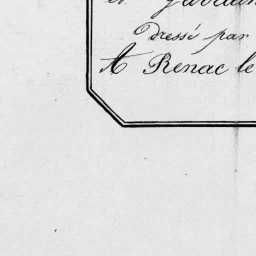 Dressé par
A Renac le